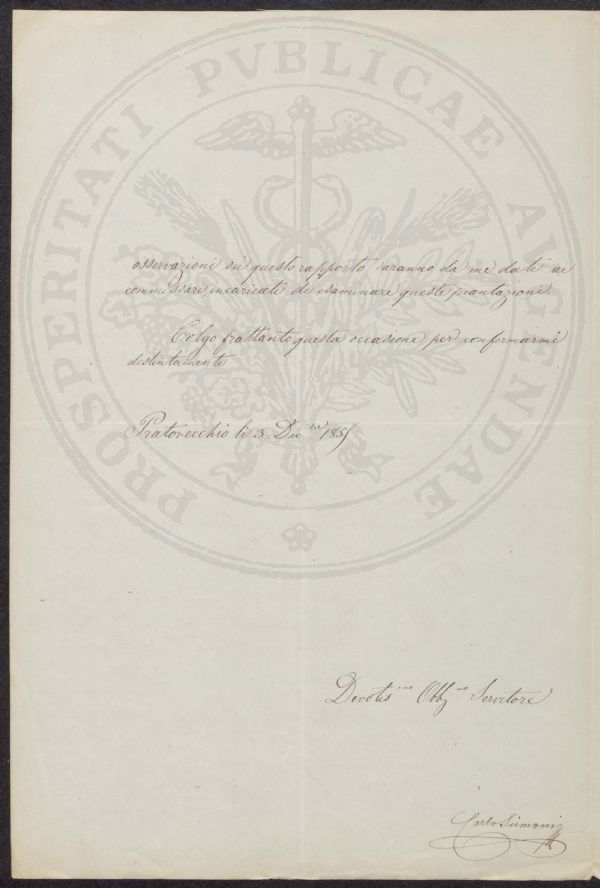 PROSPERITATI PVBLICAE AVGENDAE
osservazioni su questo rapporto saranno da me date ai
commissari incaricati di esaminare queste piantazioni.
Colgo frattanto questa occasione per confermarmi
distintamente
Pratovecchio li 3 Dic.bre 1857
Devotis.mo Obbg.mo Servitore
Carlo Siemoni